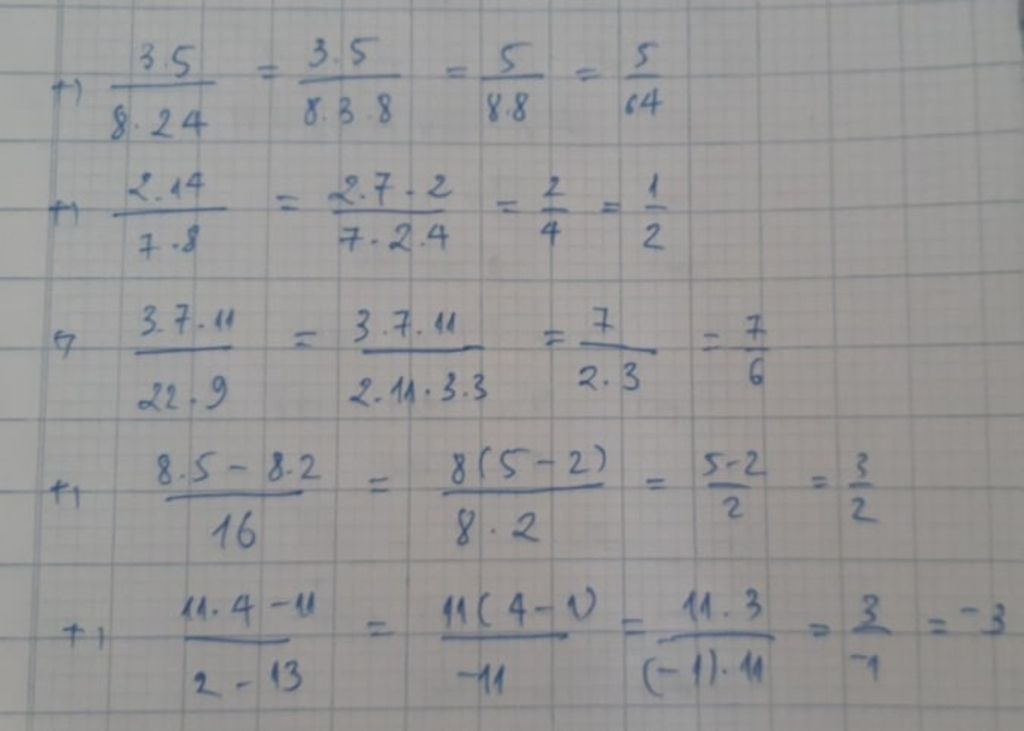 +) 3.5/8.24 = 3.5/8.3.8 = 5/8.8 = 5/64
+) 2.14/7.8 = 2.7.2/7.2.4 = 2/4 = 1/2
3.7.11/22.9 = 3.7.11/2.11.3.3 = 7/2.3 = 7/6
+) 8.5-8.2/16 = 8(5-2)/8.2 = 5-2/2 = 3/2
+) 11.4-11/2-13 = 11(4-1)/-11 = 11.3/(-1).11 = 3/-1 = -3